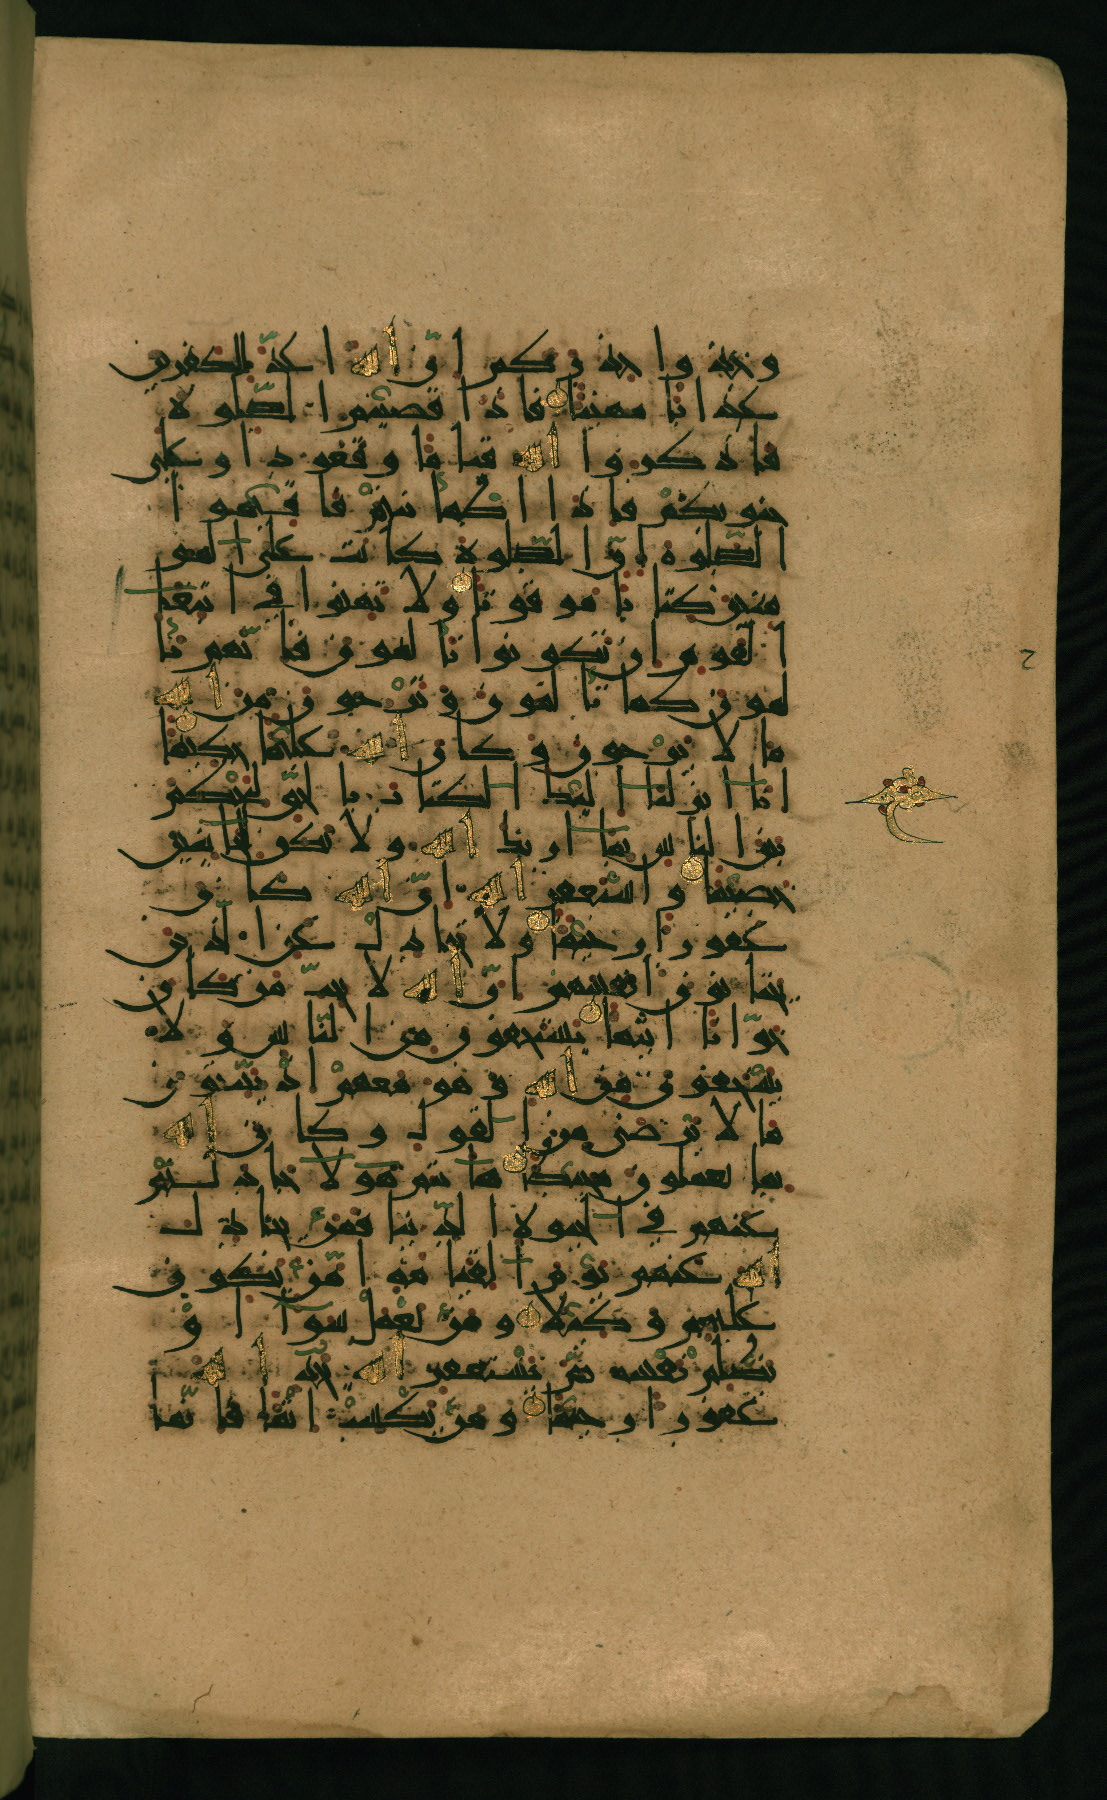 وخذوا حذركم ان الله اعد للكفرين
عذابا مهينا فاذا قضيتم الصلوة
فاذكروا الله قياما وقعودا وعلى
جنوبكم فاذا اطماننتم فاقيموا
الصلوة ان الصلوة كانت على المو
منين كتابا موقوتا ولا تهنوا في ابتغا
القوم ان تكونوا تالمون فانهم يا
لمون كما تالمون وترجون من الله
ما لا يرجون وكان الله عليما حكيما
انا انزلنا اليك الكتاب بالحق لتحكم
بين الناس بما اريك الله ولا تكن للخاينين
خصيما واستغفر الله ان الله كان
غفورا رحيما ولا تجادل عن الذين
يختانون انفسهم ان الله لا يحب من كان
خوانا اثيما يستخفون من الناس ولا
يستخفون من الله وهو معهم اذ يبيتون
ما لا يرضى من القول وكان الله
بما يعملون محيطا هانتم هولا جادلتم
عنهم في الحيوة الدنيا فمن يجادل
الله عنهم يوم القيمة امن يكون
عليهم وكيلا ومن يعمل سوا او
يظلم نفسه ثم يستغفر الله يجد الله
غفورا رحيما ومن يكسب اثما فانما